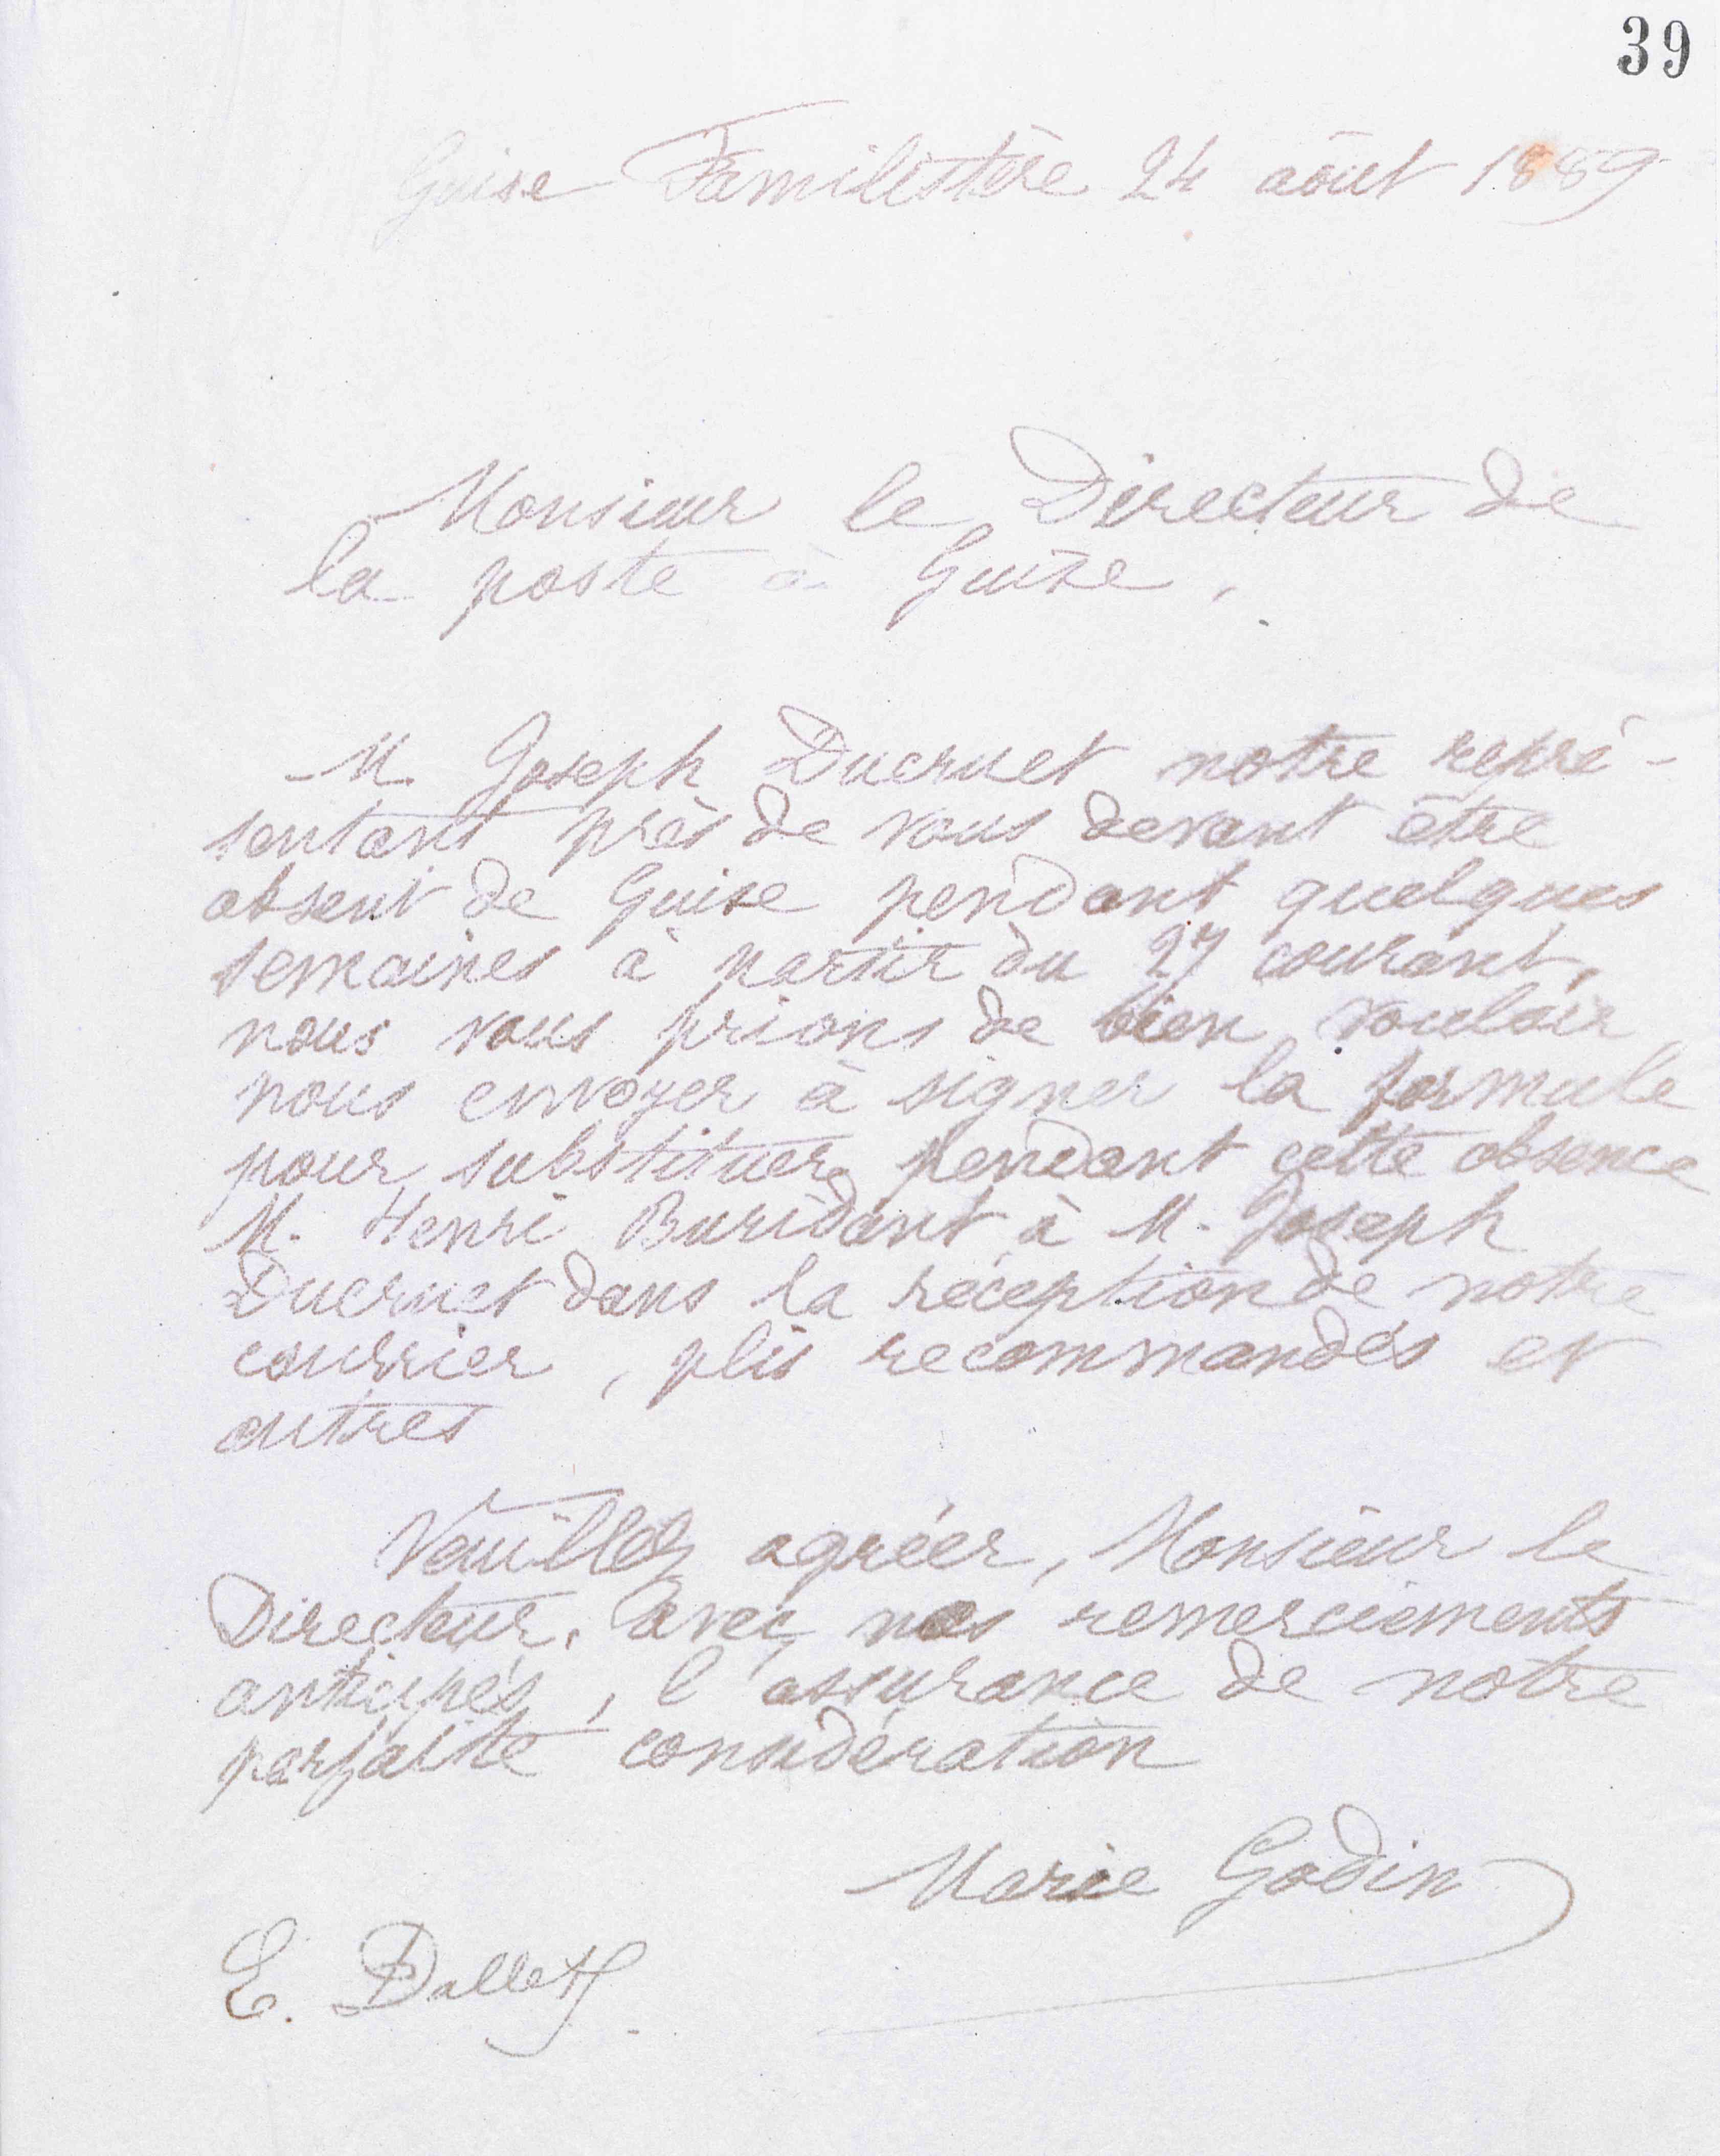 39
Guise Familistère 24 août 1889
Monsieur le Directeur de
la poste à Guise.
M. Joseph Ducruet notre repré-
sentant près de vous devant être
absent de Guise pendant quelques
semaines à partir du 27 courant,
nous vous prions de bien vouloir
nous envoyer à signer la formule
pour substituer pendant cette absence
M. Henri Buridant à M. Joseph
Ducruet dans la réception de notre
courrier, plis recommandés et
autres
Veuillez agréer, Monsieur le
Directeur, avec nos remerciements
anticipés, l'assurance de notre
parfaite considération
Marie Godin
E. Dallet